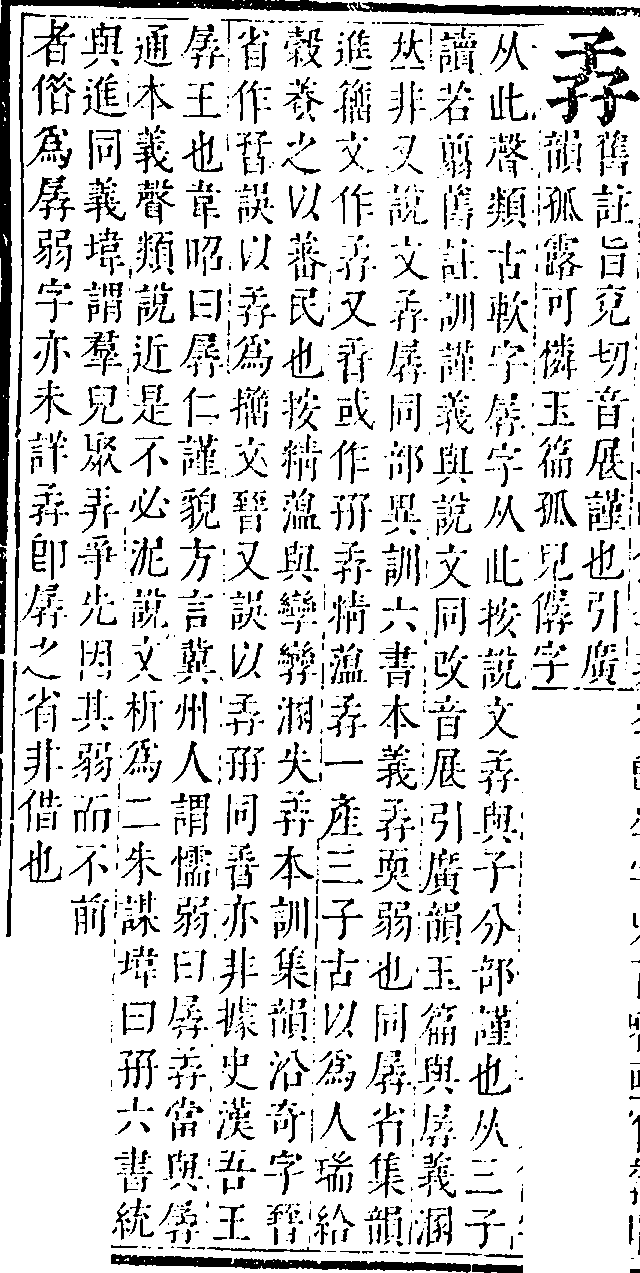 孨
舊註旨兖切音展謹也引廣
韻孤露可憐玉篇孤兒孱字
从此聲類古軟字孱字从此按說文孨與子分部謹也从三子
讀若翦舊註訓謹義與說文同攺音展引廣韻玉篇與孱義溷
𠀤非又說文孨孱同部異訓六書本義孨耎弱也同孱省集韻
進籀文作孨又孴或作孖孨精薀孨一產三子古以為人瑞給
穀養之以蕃民也按精薀與孿孿溷失孨本訓集韻沿奇字晉
省作晉誤以孨爲籀文晉又誤以孨孖同孴亦非據史漢吾王
孱王也韋昭曰孱仁謹貌方言冀州人謂懦弱曰孱孨當與孱
通本義聲類說近是不必泥說文析爲二朱謀㙔曰孖六書統
與進同義㙔謂羣兒聚弄爭先因其弱而不前
者偺爲孱弱字亦未詳孨卽孱之省非借也